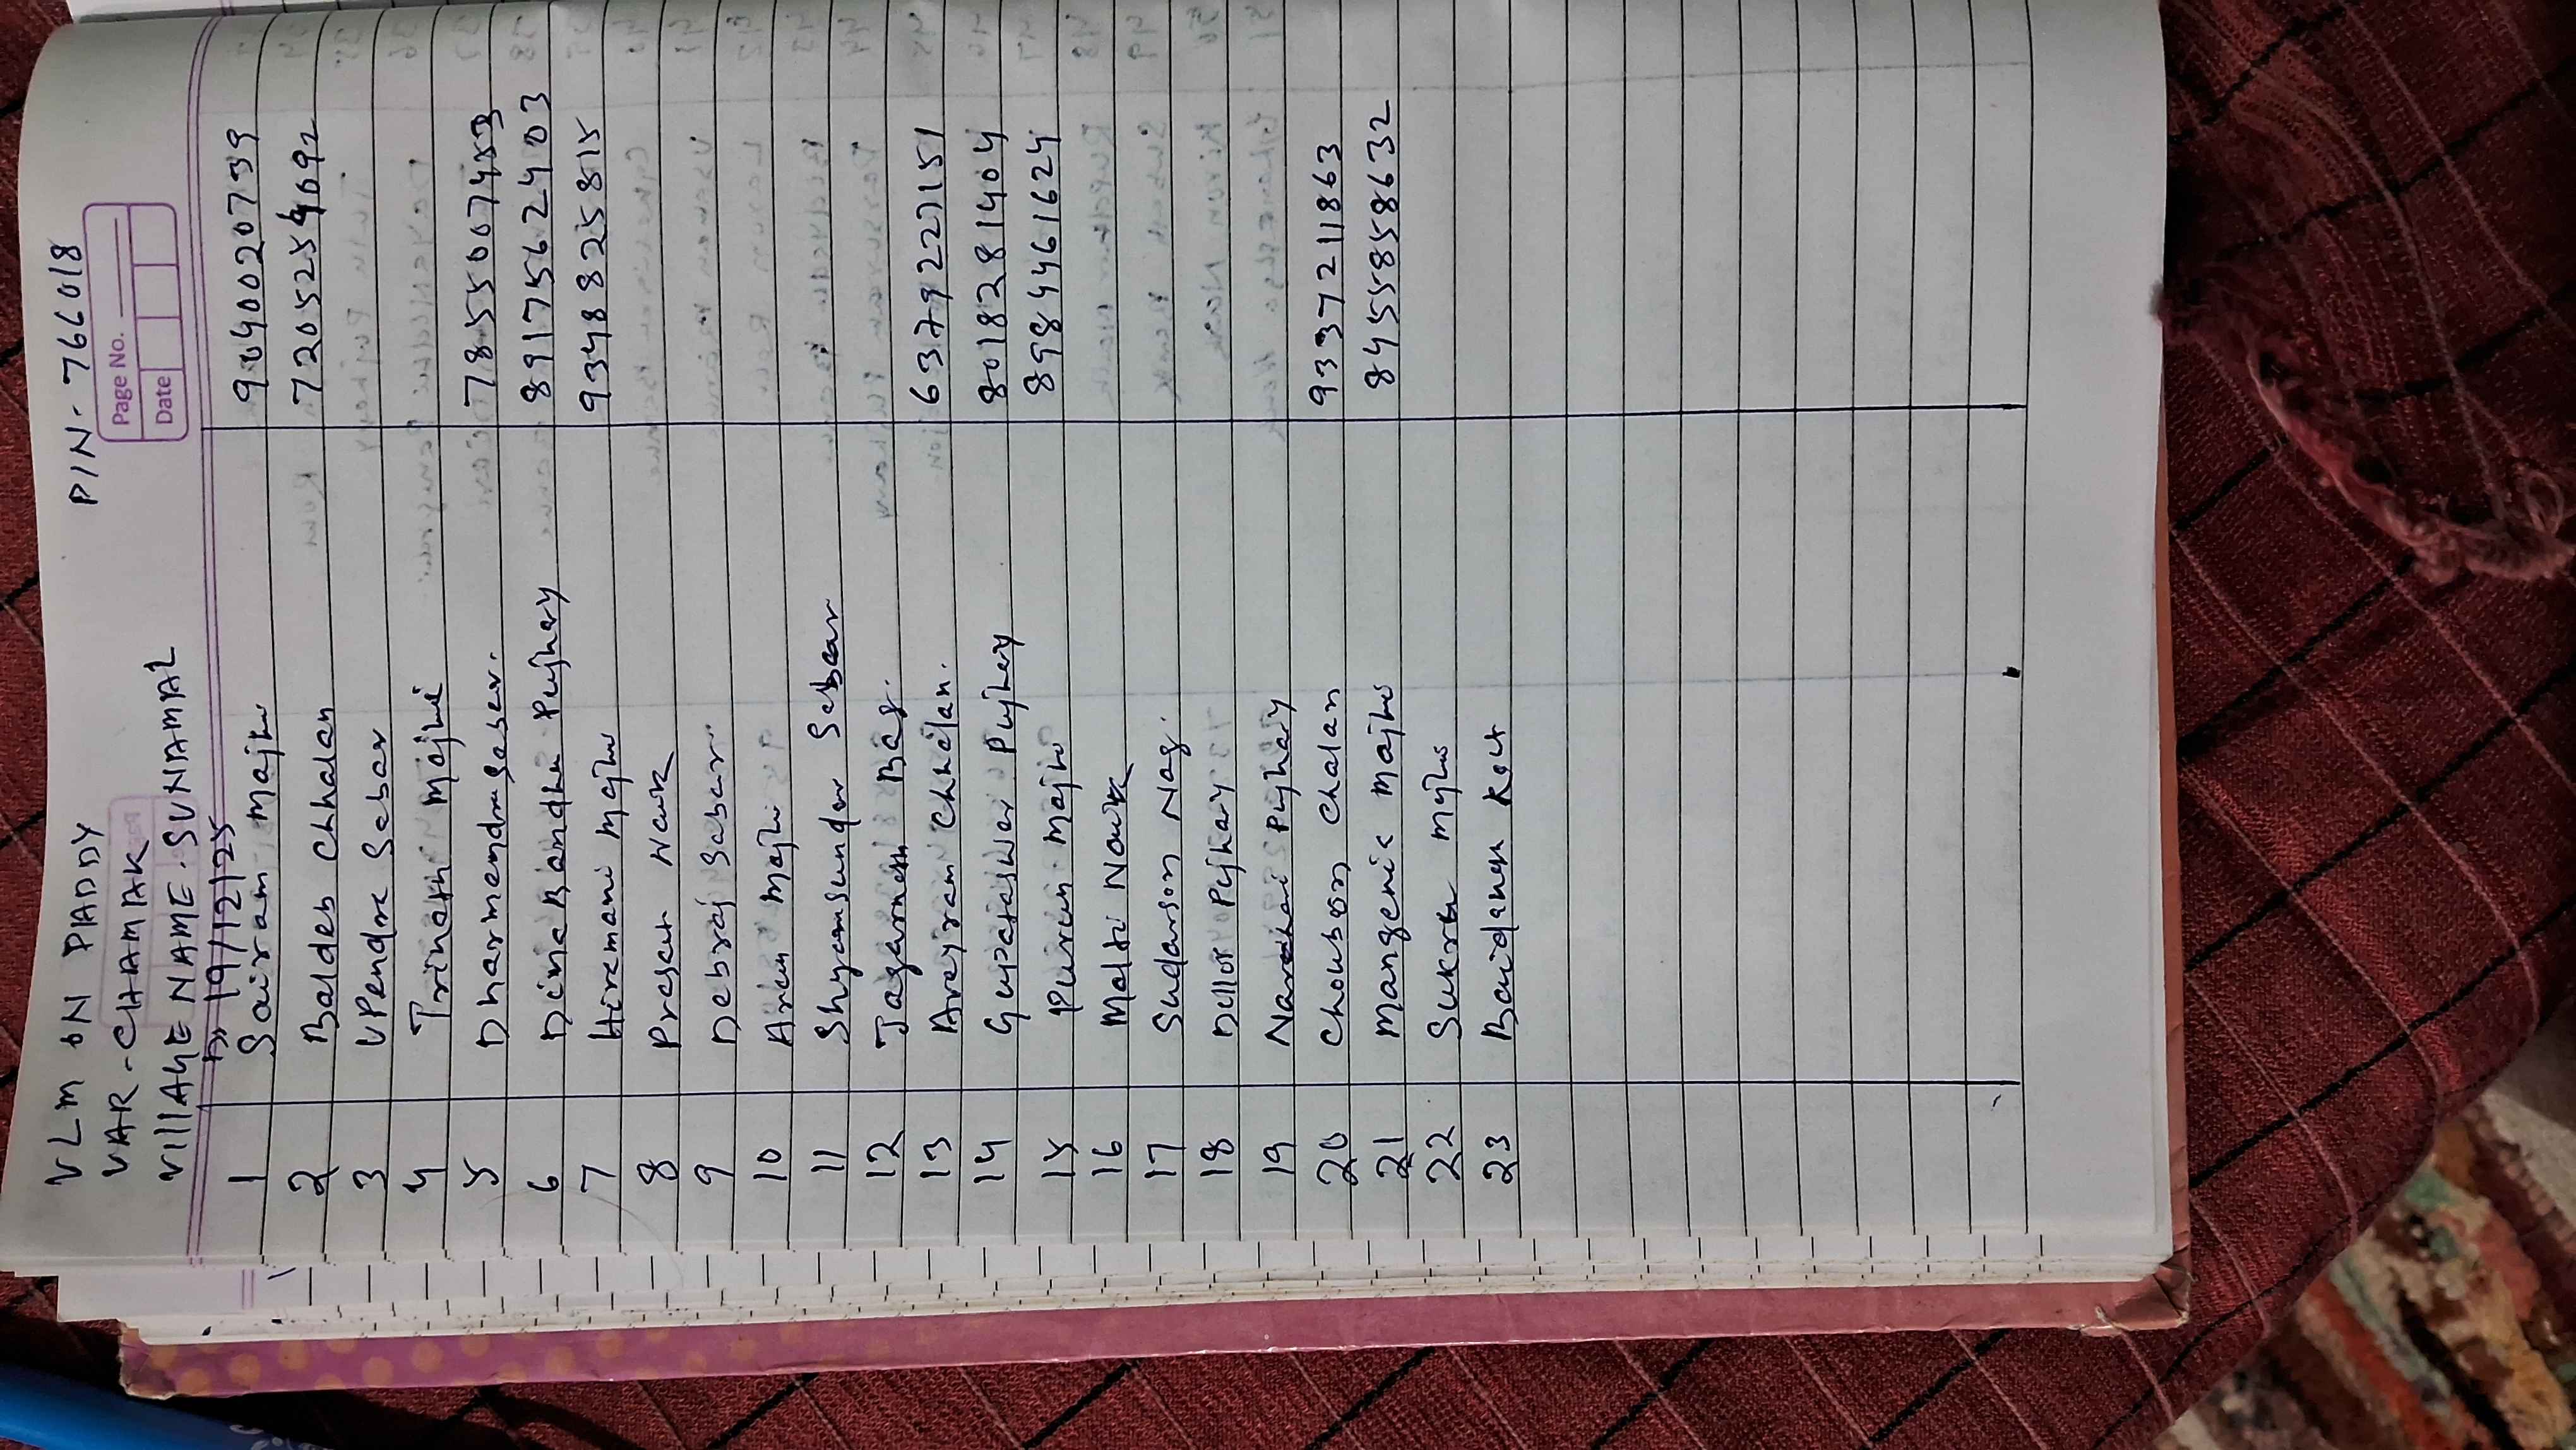 VLM ON PADDY PIN- 766018
VAR-CHAMAK
VILLAGE NAME. SUNAMAL
Page No.
Date
D. 19/12/25
1 Sairam Majhi
2 Baldeb Chhalan
3 UPendra Sabar
4 Trinath Majhi
5 Dharmendra Saber.
6 Dina Bandhu Pujhary 8917562403
7 Hiramani Majhi 9348825815
8 Prasant Naik
9 Debraj Sabar.
10 Arun Majhi
11 Shyamsundar Sabar
12 Jagarnath Bag.
13 Arayram Chhalan. 6379227151
14 Guptaswar Pujhary 8018281404
15 Puran Majhi 8984461624
16 Malti Naik
17 Sudarson Nag.
18 Pujhary
19 Narahari Pujhary
20 Chalan 9337211863
21 Majhi 8455858632
22 Sukru Majhi
23